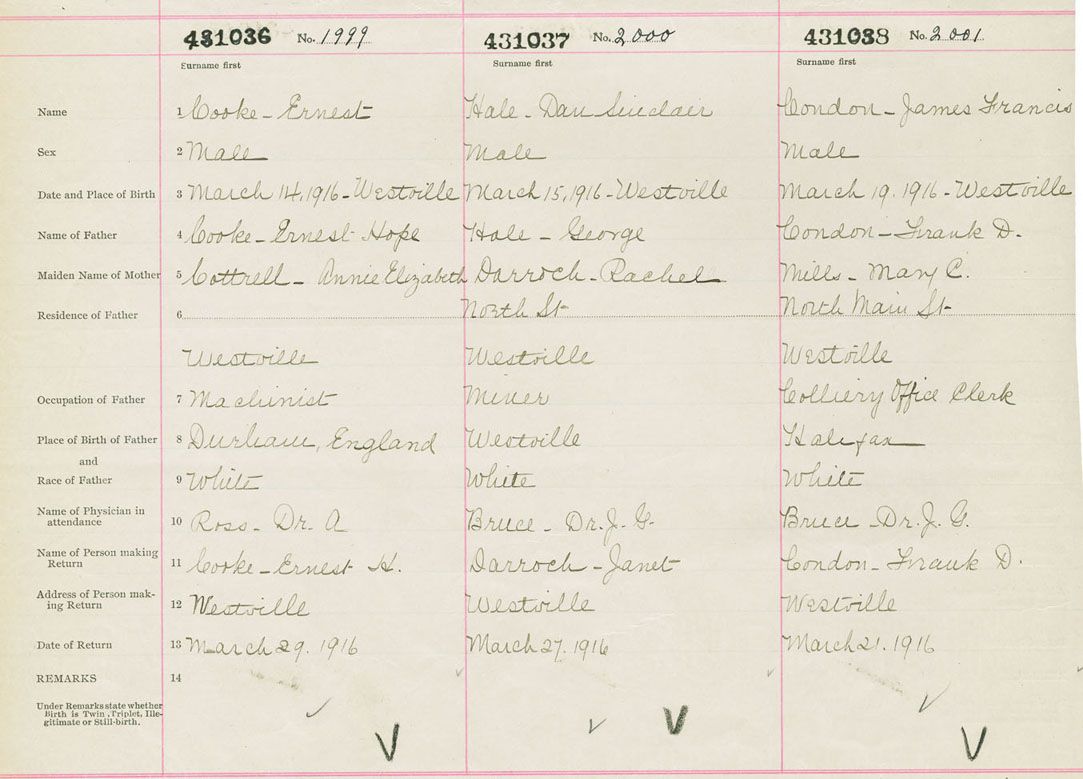 431036 No. 1999 431037 No. 2000 431038 No. 2001
Surname first Surname first Surname first
Name 1 Cooke - Ernest Hale - Dan Sinclair Condon - James Francis
Sex 2 Male Male Male
Date and Place of Birth 3 March 14, 1916 - Westville March 15, 1916 - Westville March 19. 1916 - Westville
Name of Father 4 Cooke - Ernest Hope Hale - George Condon - Frank D.
Maiden Name of Mother 5 Cottrell - Annie Elizabeth Darroch - Rachel Mills - Mary C.
Residence of Father 6 North St North Main St
Westville Westville Westville
Occupation of Father 7 Machinist Miner Colliery Office Clerk
Place of Birth of Father 8 Durham, England Westville Halifax
and
Race of Father 9 White White White
Name of Physician in
attendance 10 Ross - Dr. A Bruce - Dr. J. G. Bruce - Dr. J. G.
Name of Person making
Return 11 Cooke - Ernest H. Darroch - Janet Condon - Frank D.
Address of Person mak-
ing Return 12 Westville Westville Westville
Date of Return 13 March 29. 1916 March 27. 1916 March 21. 1916
REMARKS 14
Under Remarks state whether
Birth is Twin, Triplet, Ille-
gitimate or Still-birth.